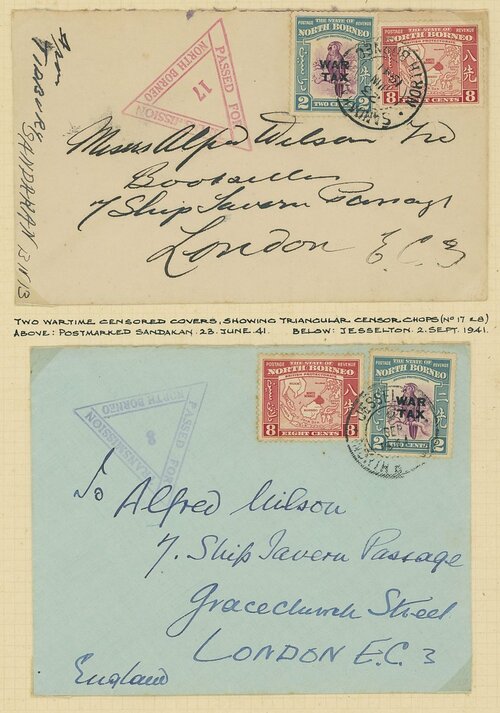 THE STATE OF
NORTH BORNEO
WAR
TAX
2 TWO CENTS 2
POSTAGE REVENUE
THE STATE OF
NORTH BORNEO
八先
8 EIGHT CENTS 8
PASSED FOR
TRANSMISSION
NORTH BORNEO
17
SANDAKAN
Messrs Alfred Wilson
Booksellers
7 Ship Tavern Passage
London E.C.3
TWO WARTIME CENSORED COVERS, SHOWING TRIANGULAR CENSOR CHOPS (Nº 17 & 8)
ABOVE: POSTMARKED SANDAKAN. 23. JUNE. 41. BELOW: JESSELTON. 2. SEPT. 1941.
POSTAGE REVENUE
THE STATE OF
NORTH BORNEO
八先
8 EIGHT CENTS 8
POSTAGE REVENUE
THE STATE OF
NORTH BORNEO
WAR
TAX
二先
2 TWO CENTS 2
PASSED FOR
TRANSMISSION
NORTH BORNEO
8
To Alfred Wilson
7. Ship Tavern Passage
Gracechurch Street
LONDON E.C. 3
England